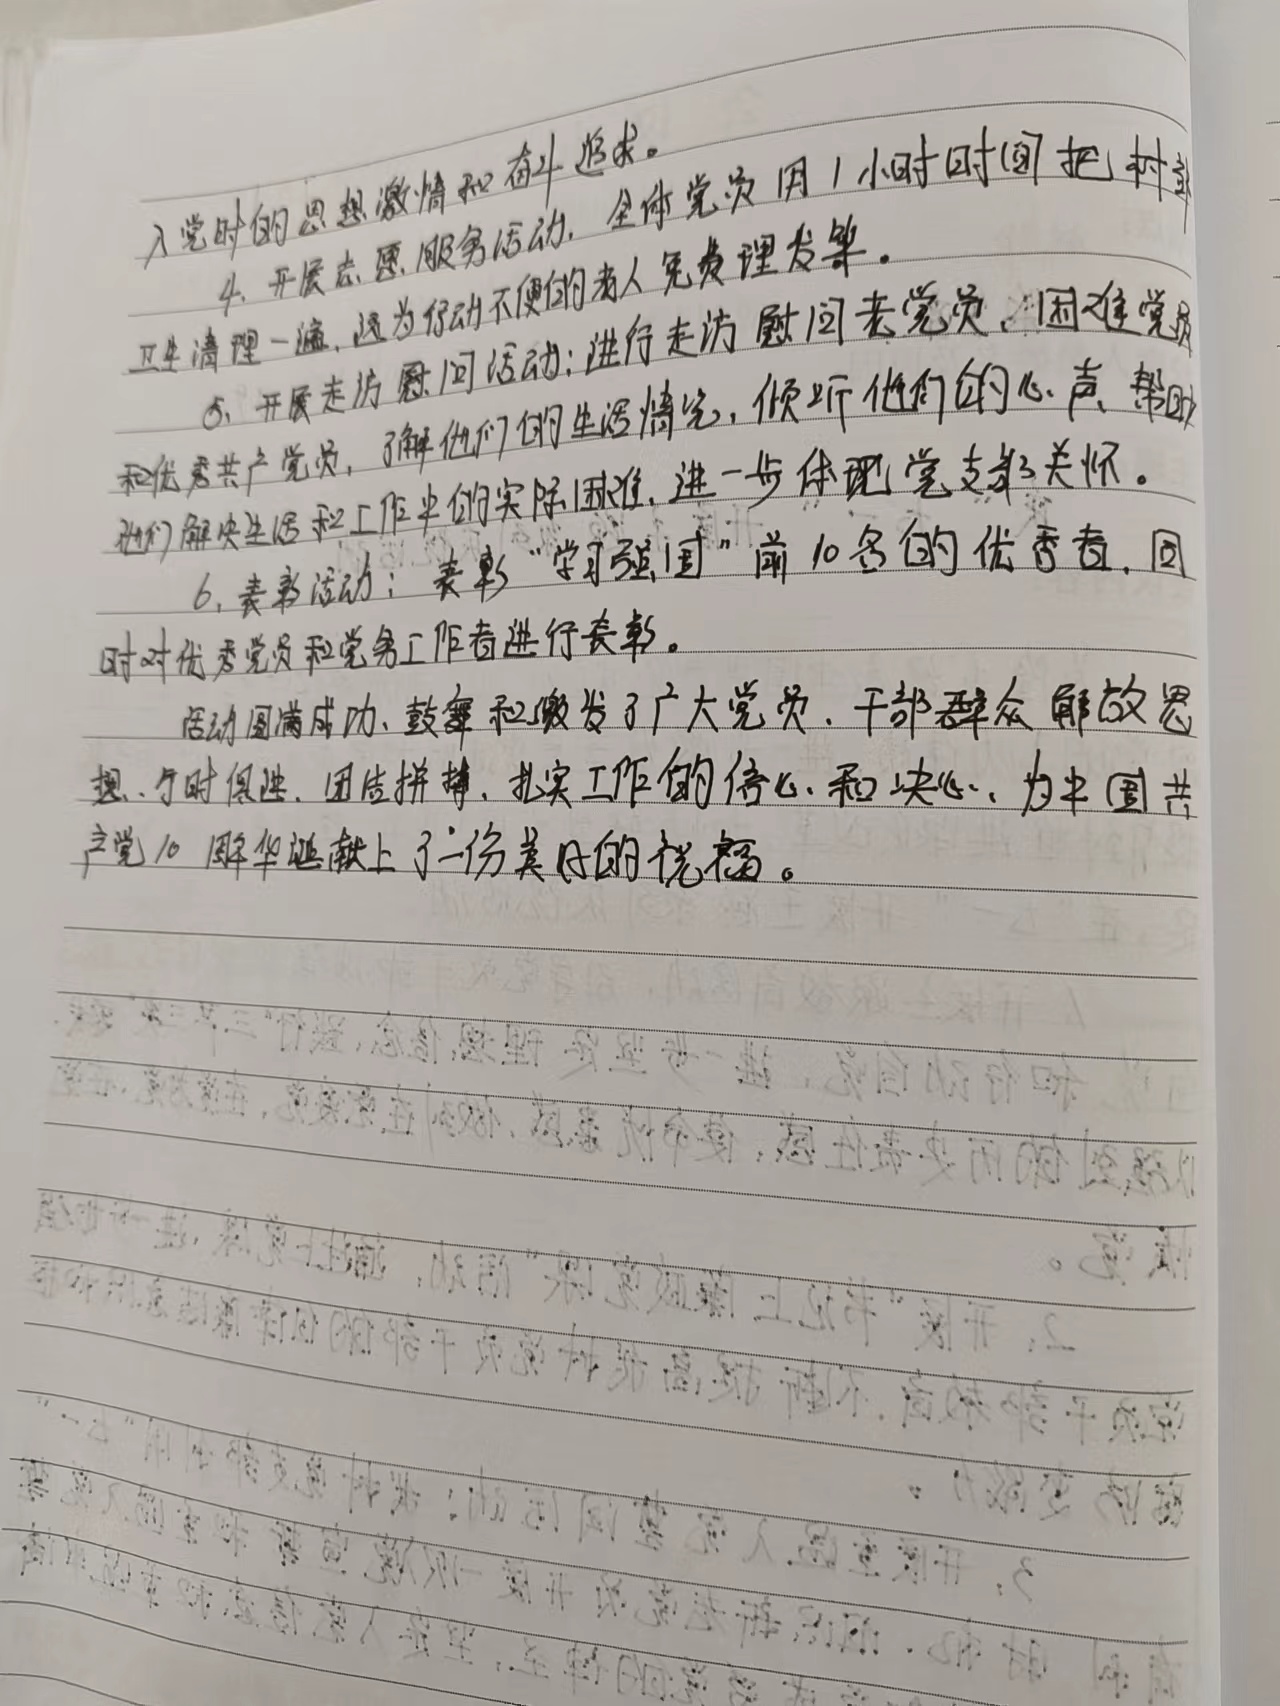 入党时的思想激情和奋斗追求。
4、开展志愿服务活动，全体党员用1小时时间把村
卫生清理一遍，还为行动不便的老人免费理发等。
5、开展走访慰问活动：进行走访慰问老党员、困难党员
和优秀共产党员，了解他们的生活情况，倾听他们的心声、帮助
他们解决生活和工作中的实际困难，进一步体现党支部关怀。
6、表彰活动：表彰“学习强国”前10名的优秀者，同
时对优秀党员和党务工作者进行表彰。
活动圆满成功、鼓舞和激发了广大党员、干部群众解放思
想、与时俱进、团结拼搏、扎实工作的信心和决心、为中国共
产党10周年华诞献上了一份美好的祝福。